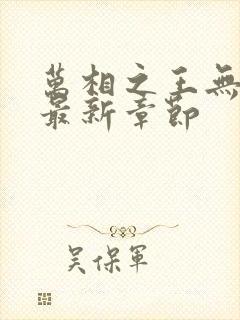 萬相之王無
最新章節
吳保軍